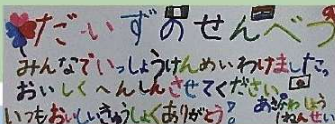 だいずのせんべつ
みんなでいっしょうけんめいわけました。
おいしくへんしんさせてください
いつもおいしいきゅうしょくありがとう！